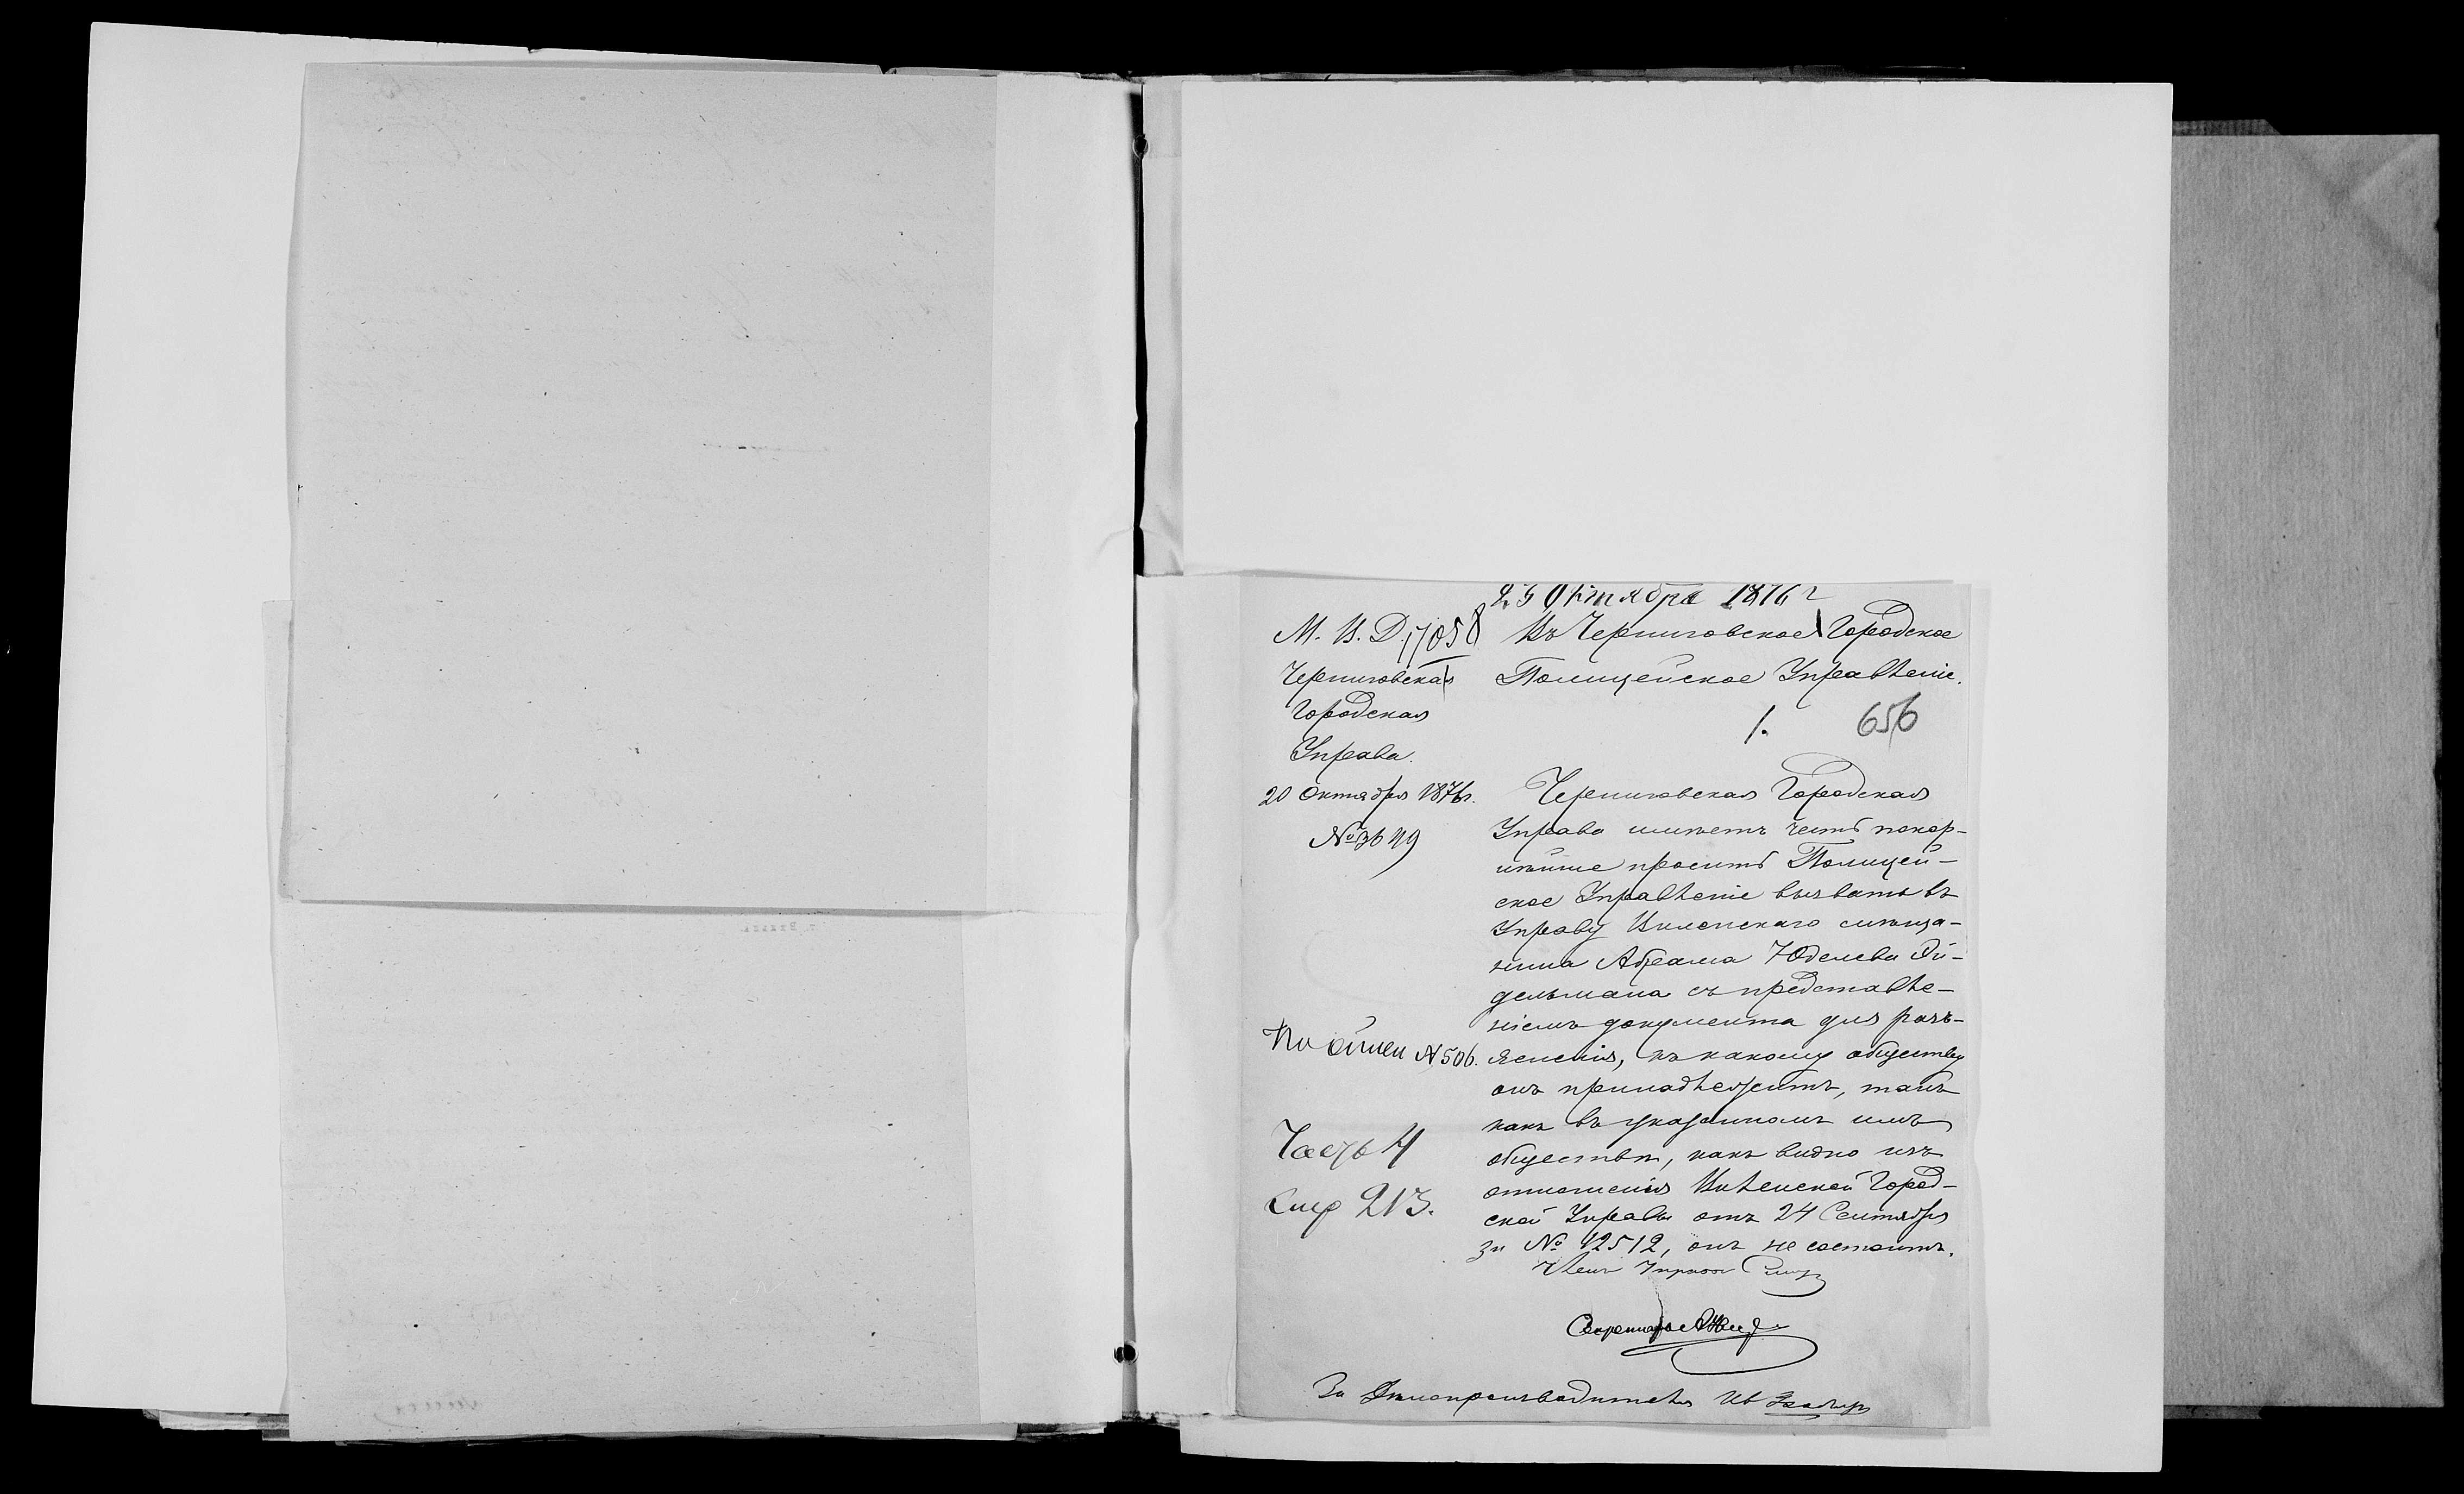 23 Октября 1876 г
М. В. Д. 17058
Черниговская
Городская
Управа.
20 Октября 1876 г.
№ 3649
По описи № 506.
Часть 4
213.
Въ Черниговское Городское
Полицейское Управленіе.
1. 656
Черниговская Городская
Управа имѣетъ честь покор-
нѣйше просить Полицей-
ское Управленіе вызвать въ
Управу Виленскаго мѣща-
нина Абрама Юделева Эй-
дельмана съ представле-
ніемъ документа для разъ-
ясненія, къ какому обществу
онъ принадлежитъ, такъ
какъ въ указанномъ имъ
обществѣ, какъ видно изъ
отношенія Виленской Город-
ской Управы отъ 24 Сентября
за № 12512, онъ не состоитъ.
Членъ Управы
Секретарь
За Дѣлопроизводителя